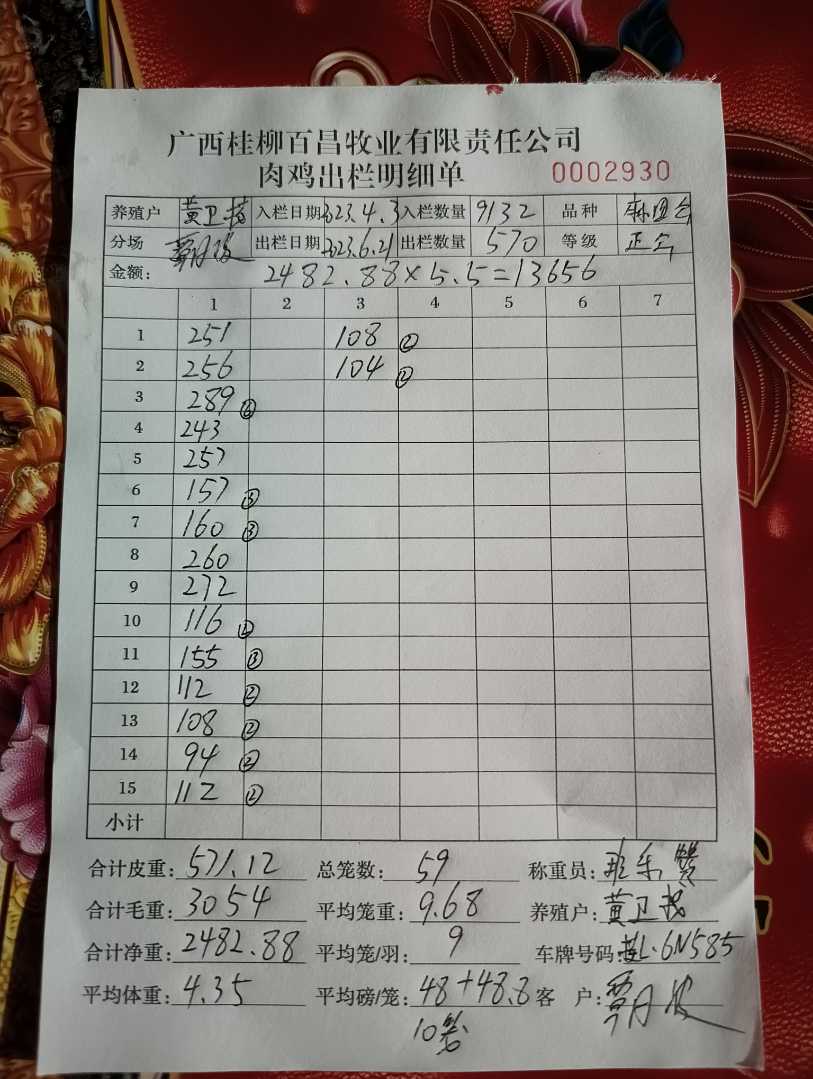 广西桂柳百昌牧业有限责任公司
肉鸡出栏明细单 0002930
养殖户 黄卫 入栏日期 2023.4.3 入栏数量 9132 品种
分场 覃月波 出栏日期 2023.6.21 出栏数量 570 等级 正
金额: 2482.88×5.5=13656
1 2 3 4 5 6 7
1 251 108 ②
2 256 104 ②
3 289
4 243
5 257
6 157 ③
7 160 ③
8 260
9 272
10 116 ②
11 155 ③
12 112 ②
13 108 ②
14 94 ②
15 112 ②
小计
合计皮重: 571.12 总笼数: 59 称重员:
合计毛重: 3054 平均笼重: 9.68 养殖户: 黄卫
合计净重: 2482.88 平均笼/羽: 9 车牌号码: L·6N585
平均体重: 4.35 平均磅/笼: 48+48.8 客 户: 覃月波
10笼